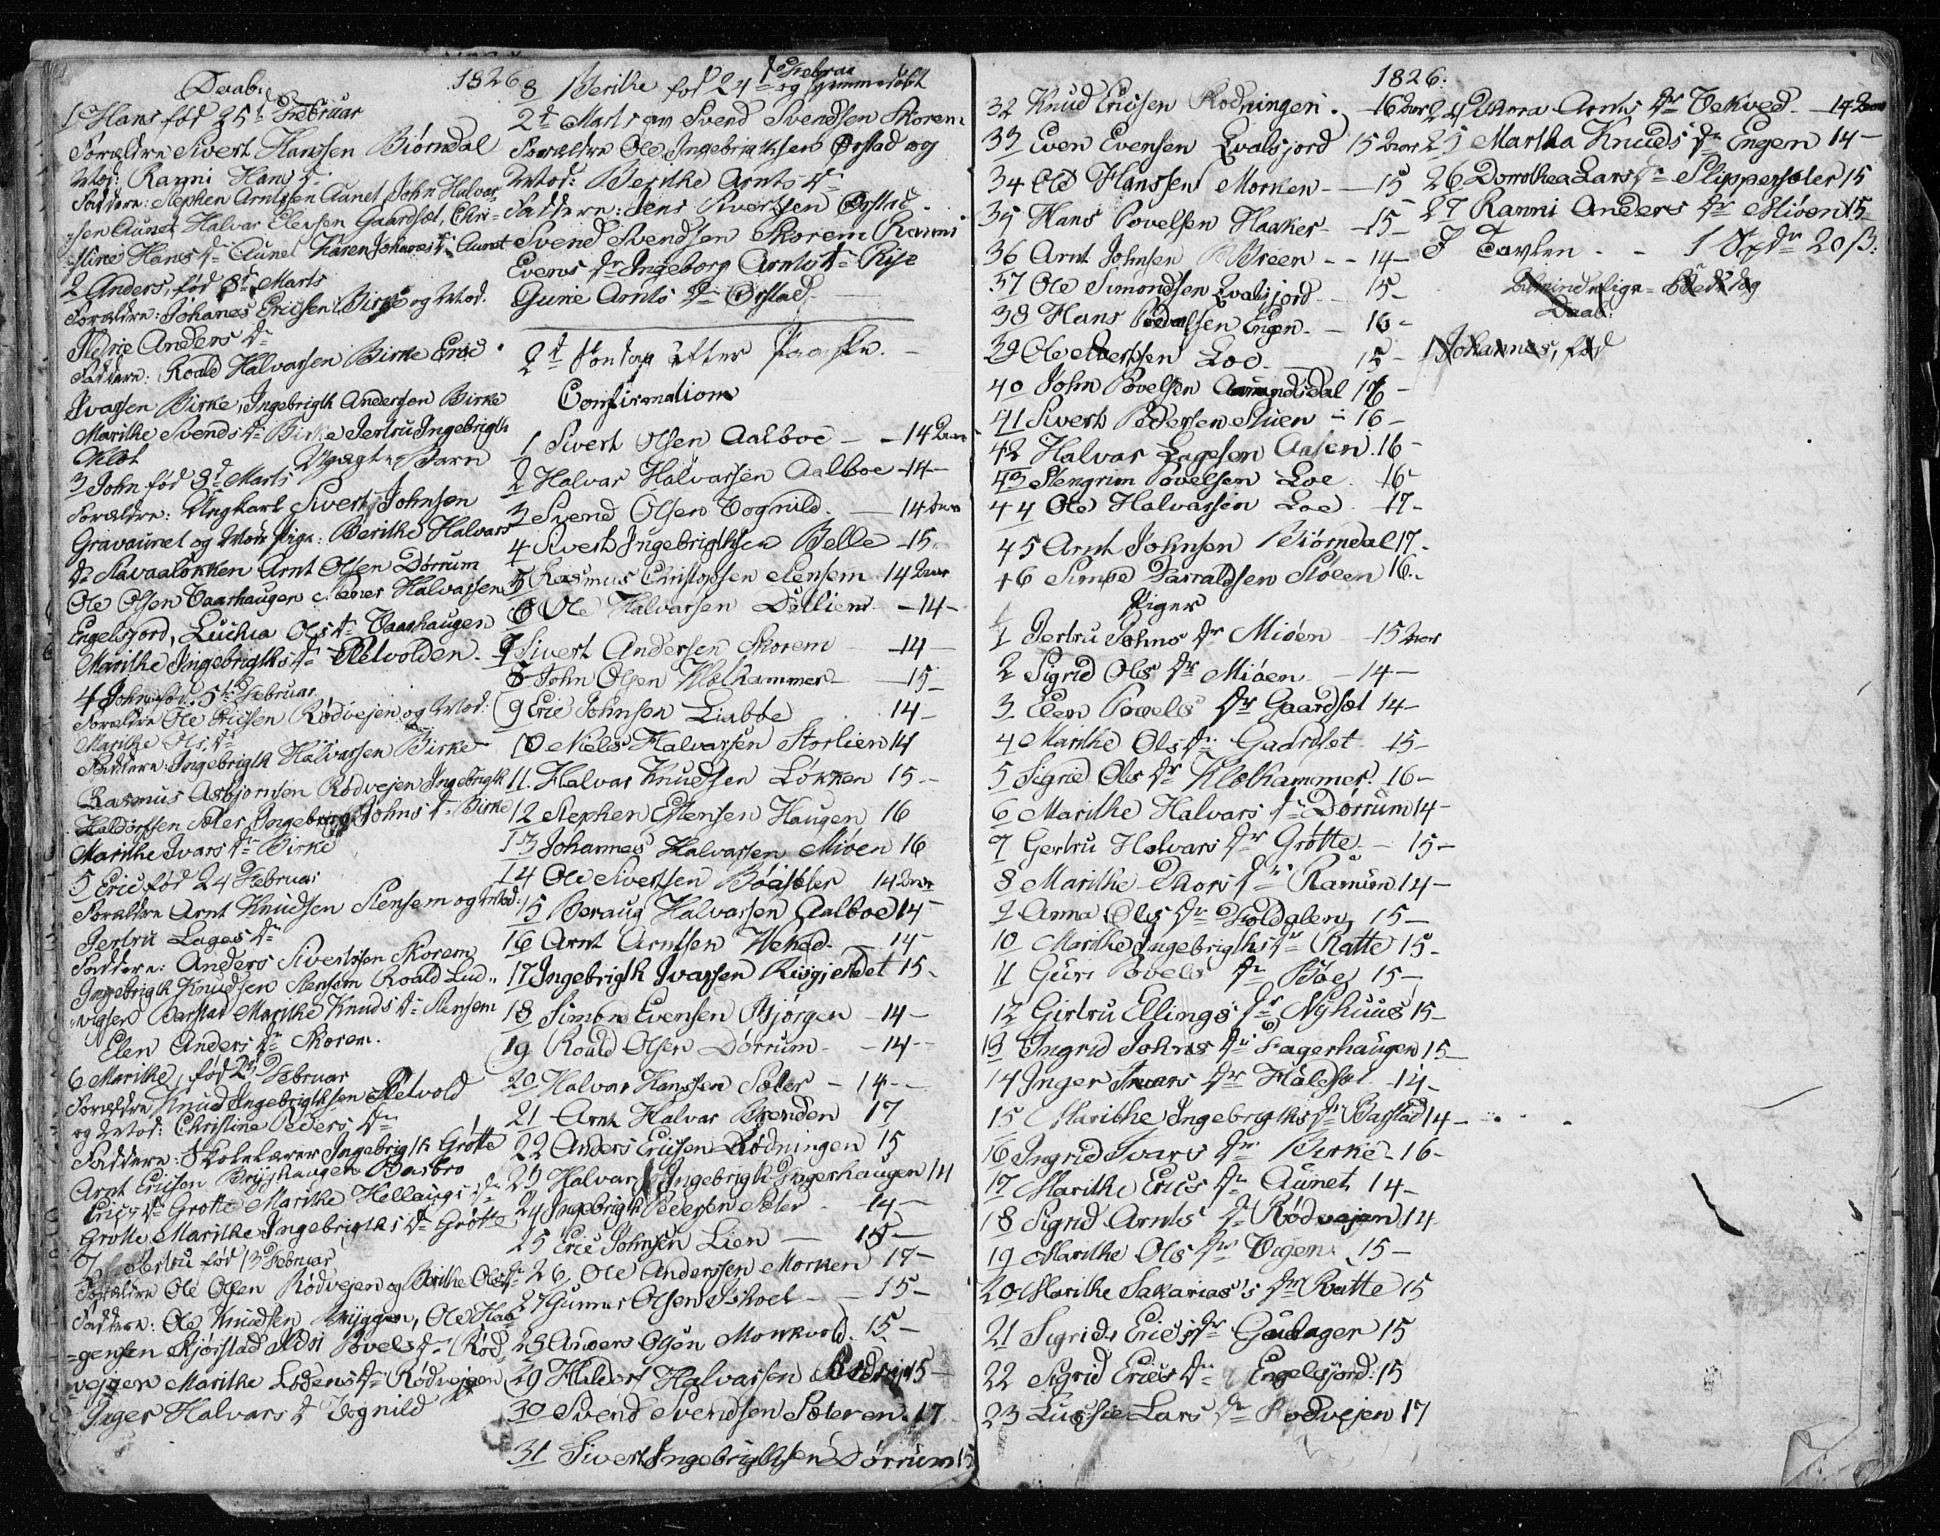 Daab. 1826
1 Hans fød 25d Februar
Forældre Sivert Hanssen Biørndal
Mod: Ranni Hans Dr
Faddere: Stephen Arntssen Aunet John Halvar
sen Aunet Halvar Elevsen Gaardsæt, Chri-
stine Hans Dr Aunet Karen Johanes Dr Aunet
2 Anders, fød 8d Marts
Forældre: Johanes Ericsen Birke og Mod:
Anders Dr
Faddere: Roald Halvarsen Birke Eric
Ivarsen Birke, Ingebrigth Andersen Birke
Marithe Svends Dr Birke Jertru Ingebrigth
Uægte Barn
3 John fød 3d Marts
Forældre: Ungkarl Sivert Johnsen
Gravaunet og Mod Pige: Berithe Halvars
Dr Slavaaløkken Arnt Olsen Dørrum
Ole Olsen Vaarhaugen Halvarsen
Engelsjord, Luchia Ols Dr Vaarhaugen
Marithe Ingebrigths Dr Retvolden
4 John fød 5te Februar
Forældre Ole Ericsen Rødvejen og Mod:
Marithe Ols Dr
Faddere: Ingebrigth Halvarsen Birke
Rasmus Asbjørnsen Rødvejen Ingebrigth
Haldorssen Sæter Ingeborg Johns Dr Birke
Marithe Ivars Dr Birke
5 Eric fød 24 Februar
Forældre Arnt Knudsen Stensem og Mod:
Jertru Lages Dr
Faddere: Anders Sivertsen Skorem
Ingebrigth Knudsen Stensem Roald Lud-
vigsen Barstad Marithe Knuds Dr Stensem
Elen Anders Dr Skorem.
6 Marithe, fød 23 Februar
Forældre Knud Ingebrigthsen Retvold
og Mod: Christine Peders Dr
Faddere: Skolelærer Ingebrigth Grøtte
Arnt Ericsen Bryghaugen Barbro
Erics Dr Grøtte Marithe Hellaugs Dr
Grøtte Marithe Ingebrigths Dr Grøtte
7 Jertru fød 13 Februar
Forældre Ole Olsen Rødvejen og Berithe Ols Dr
Faddere: Ole Knudsen Bryggen, Ole Haa
gensen Povels Dr Rød
vejen Marithe Lodens Dr Rødvejen
Inger Halvars Dr Vognild
8 Berithe fød 24 Februar og hjemmedøbt
2d Marts av Svend Svendsen Skorem
Forældre Ole Ingebrigthsen Ørstad og
Mod: Berithe Arnts Dr
Faddere: Jens Sivertsen Ørstad
Svend Svendsen Skorem Ranni
Evens Dr Ingeborg Arnts Dr Rise
Gurie Arnts Dr Ørstad
2d Søndag efter Paaske.
Confirmation
1 Sivert Olsen Aalboe - 14 Aar
2 Halvar Halvarsen Aalboe 14
3 Svend Olsen Vognild. 14 Aar
4 Sivert Ingebrigthsen Belle 15
5 Rasmus Christopsen Stensem 14 Aar
6 Ole Halvarsen Detliem - 14 -
7 Sivert Andersen Skorem 14
8 John Olsen Klethammer 15
9 Eric Johnsen Liaboe 14
10 Niels Halvarsen Storlien 14
11. Halvar Knudsen Løkken 15
12 Stephen Estensen Haugen 16
13 Johannes Halvarsen Miøen 16
14 Ole Sivertsen Böesæter 14 Aar
15 Beraug Halvarsen Aalboe 14
16 Arnt Arntsen 14
17 Ingebrigth Ivarsen Risgjerdet 15
18 Simon Evensen Bjørgen - 14
19 Roald Olsen Dørrum - 14
20 Halvar Hanssen Sæter - 14
21 Arnt Halvar Brenden 17
22 Anders Ericsen Rødningen 15
23 Halvar Ingebrigth Fagerhaugen 14
24 Ingebrigth Pedersen Sæter 14
25 Eric Johnsen Lien 15
26 Ole Anderssen Morken 17
27 Gunner Olsen - 15
28 Anders Olsen Monkvold 15
29 Haldor Halvarsen 15
30 Svend Svendsen Sæteren 17
31 Sivert Ingebrigthsen Dørrum 15
1826.
32 Knud Ericsen Rødningen. 16 Aar
33 Even Evensen Evalsjord 15 Aar
34 Ole Hanssen Morken - 15
35 Hans Povelsen Haaker - 15
36 Arnt Johnsen Breen - 14
37 Ole Simondsen Evalsjord 15
38 Hans Povelsen Engen - 16
39 Ole Loe 15
40 John Povelsen Amundsdal 16
41 Sivert Pedersen Stuen 16
42 Halvar Lagesen Aasen 16
43 Stengrim Povelsen Loe 16
44 Ole Halvarsen Loe 17
45 Arnt Johnsen Biørndal 17
46 Simon Støen 16
Piger
1 Jertru Johns Dr Miøen 15 Aar
2 Sigrid Ols Dr Miøen 14
3 Elen Povels Dr Gaardsæt 14
4 Marithe Ols Dr Gardset 15
5 Sigrid Ols Dr Klethammer 16
6 Marithe Halvars Dr Dørrum 14
7 Gertru Halvars Dr Grøtte 15
8 Marithe Thors Dr Ramsøn 14
9 Anna Ols Dr Foldalen, 15
10 Marithe Ingebrigths Dr Ratte 15
11 Guri Povels Dr Bøe 15
12 Girtru Ellings Dr Nyhuus 15
13 Ingrid Johns Dr Fagerhaugen 15
14 Inger Ivars Dr Haldsæt 14
15 Marithe Ingebrigths Dr Barstad 14
16 Ingrid Ivars Dr Birke 16
17 Marithe Erics Dr Aunet 14
18 Sigrid Arnts Dr Rødvejen 14
19 Marithe Ols Dr Vigen 15
20 Marithe Sakarias's Dr Ratte 15
21 Sigrid Erics Dr Gulager 15
22 Sigrid Erics Dr Engelsjord: 15
23 Lussie Lars Dr Rødvejen 17
24 Anna Arnts Dr Vekved 14 Aar
25 Martha Knuds Dr Engem 14
26 Dorrothea Lars Dr Slippersæter 15
27 Ranni Anders Dr Miøen 15
I Tavlen - - 1 Spdr 20 ß.
Almindelige Bededag
Daab:
1 Johannes, fød